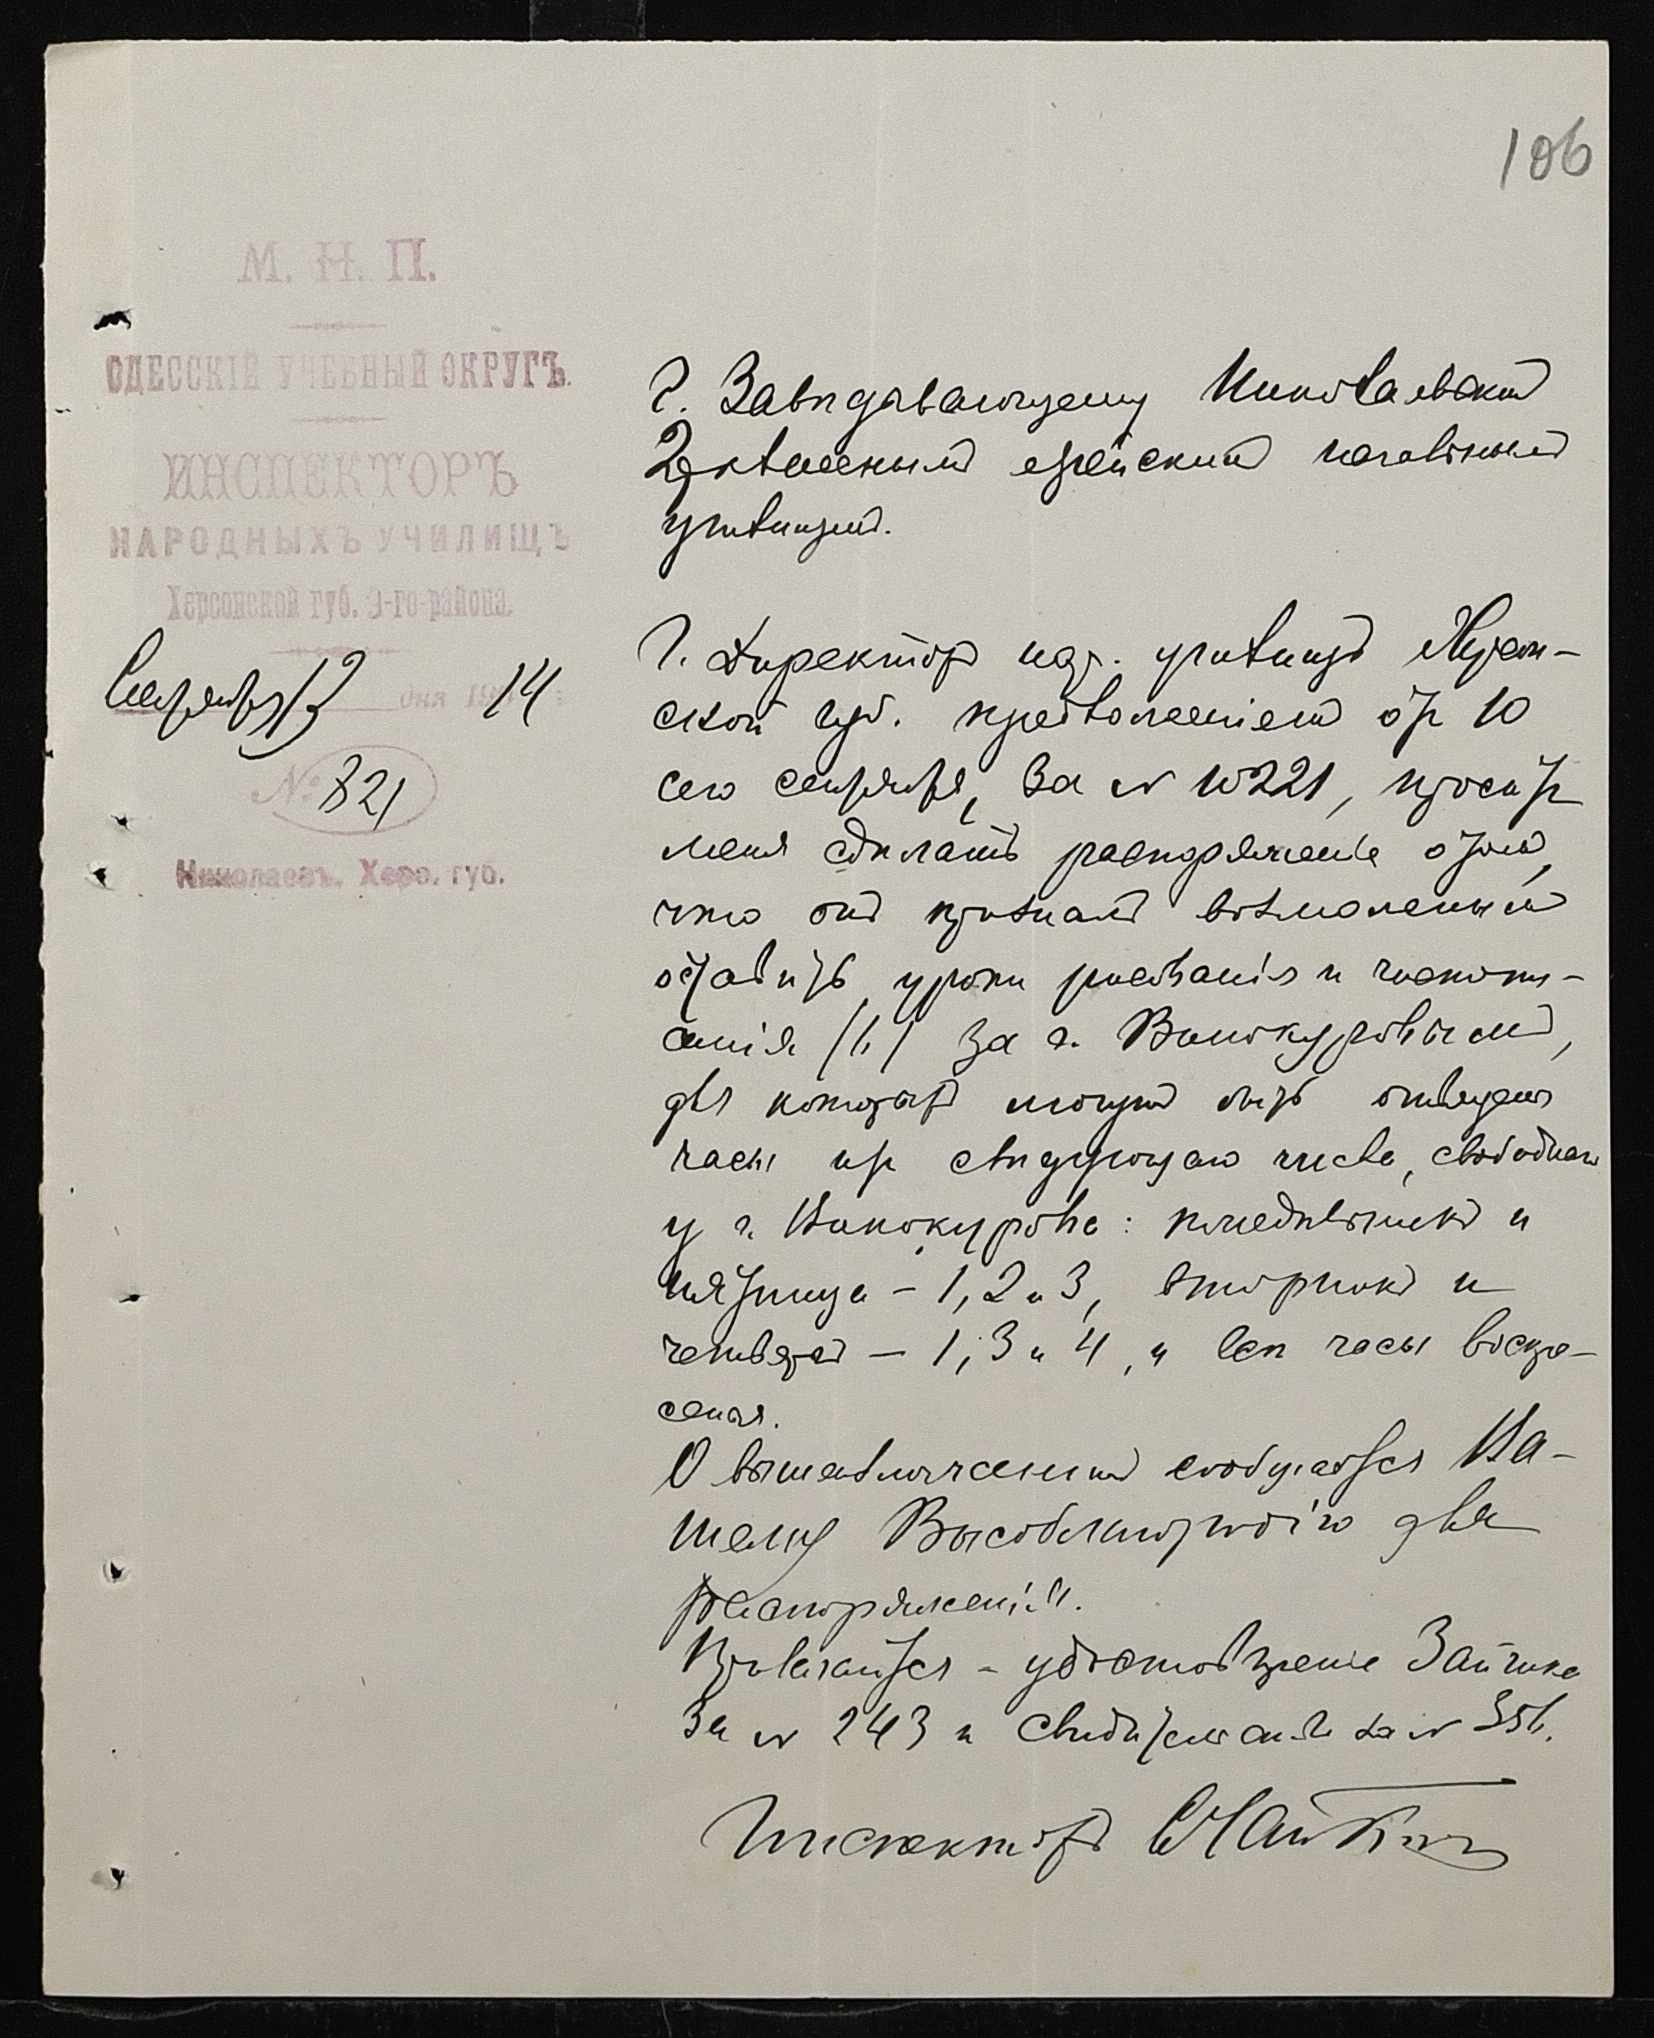 106
М. Н. П.
ОДЕССКІЙ УЧЕБНЫЙ ОКРУГЪ.
ИНСПЕКТОРЪ
НАРОДНЫХЪ УЧИЛИЩЪ
Херсонской губ. 3-го района.
Сентября 13 дня 1914
№ 821
Николаевъ, Херс. губ.
Г. Завѣдывающему Николаевскимъ
еврейскимъ начальнымъ
училищемъ.
Г. Директоръ нар. училищъ Херсон-
ской губ. предложеніемъ отъ 10
сего сентября, за № 10221, проситъ
меня сдѣлать распоряженіе о томъ,
что онъ призналъ возможнымъ
оставить уроки рисованія и чистопи-
санія за г. Винокуровымъ,
для которыхъ могутъ быть отведены
часы изъ слѣдующаго числа, свободныхъ
у г. Винокурова: понедѣльникъ и
пятница – 1, 2 и 3, вторникъ и
четвергъ – 1, 3 и 4, и всѣ часы воскре-
сенья.
О вышеизложенномъ сообщается Ва-
шему Высокоблагородію для
распоряженій.
Прилагается – удостовѣреніе Зайчика
за № 243 и свидѣтельство за №
Инспекторъ